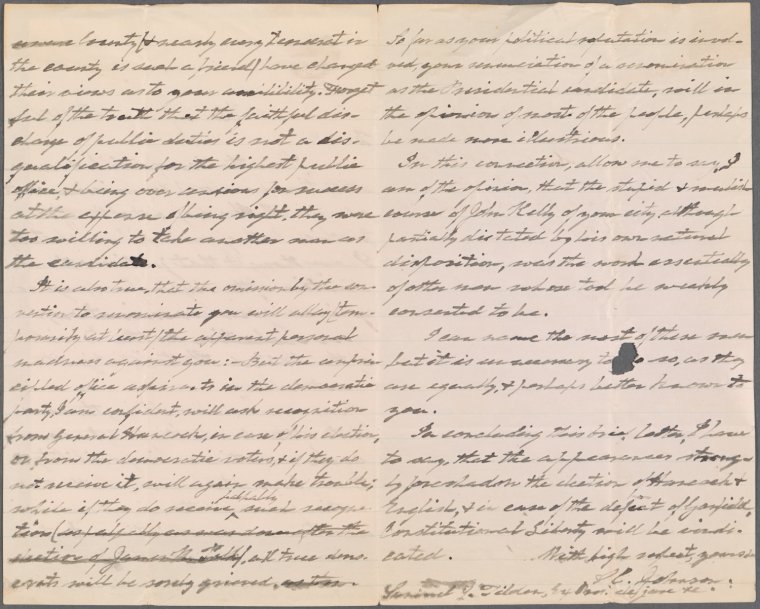 County (& nearly every Democrat in
the county is such a friend) have changed
their views as to your availibility. Forget
ful of the truth that the faithful dis-
charge of public duties is not a dis-
qualification for the highest public
office, & being over anxious for success
at the expense of being right, they were
too willing to take another man as
the candidate.
It is also true, that the omission by the con-
vention to renominate you will allay (tem-
porarily at least) the apparent personal
madness against you: – But the unprin-
cipled office aspirants in the democratic
party, I am confident, will ask recognition
from General Hancock, in case of his election,
or from the democratic voters, & if they do
not receive it, will again make trouble;
while if they do receive such recogni-
tion (especially as was done after the
election of James K. Polk), all true demo-
crats will be sorely grieved.
So far as your political reputation is invol-
ved, your renunciation of a renomination
as the Presidential candidate, will in
the opinion of most of the people, perhaps
be made more illustrious.
In this connection, allow me to say, I
am of the opinion, that the stupid & mulish
course of John Kelly of your city, although
partially dictated by his own natural
disposition, was the work essentially
of other men whose tool he weakly
consented to be.
I can name the most of these men
but it is unnecessary to do so, as they
are equally, & perhaps better known to
you.
In concluding this brief letter, I have
to say, that the appearances strong-
ly foreshadow the election of Hancock &
English, & in case of the defeat of Garfield,
Constitutional Liberty will be vindi-
cated.
With high respect, yours
Johnson.
Samuel J. Tilden, Ex Pres. de jure &c.